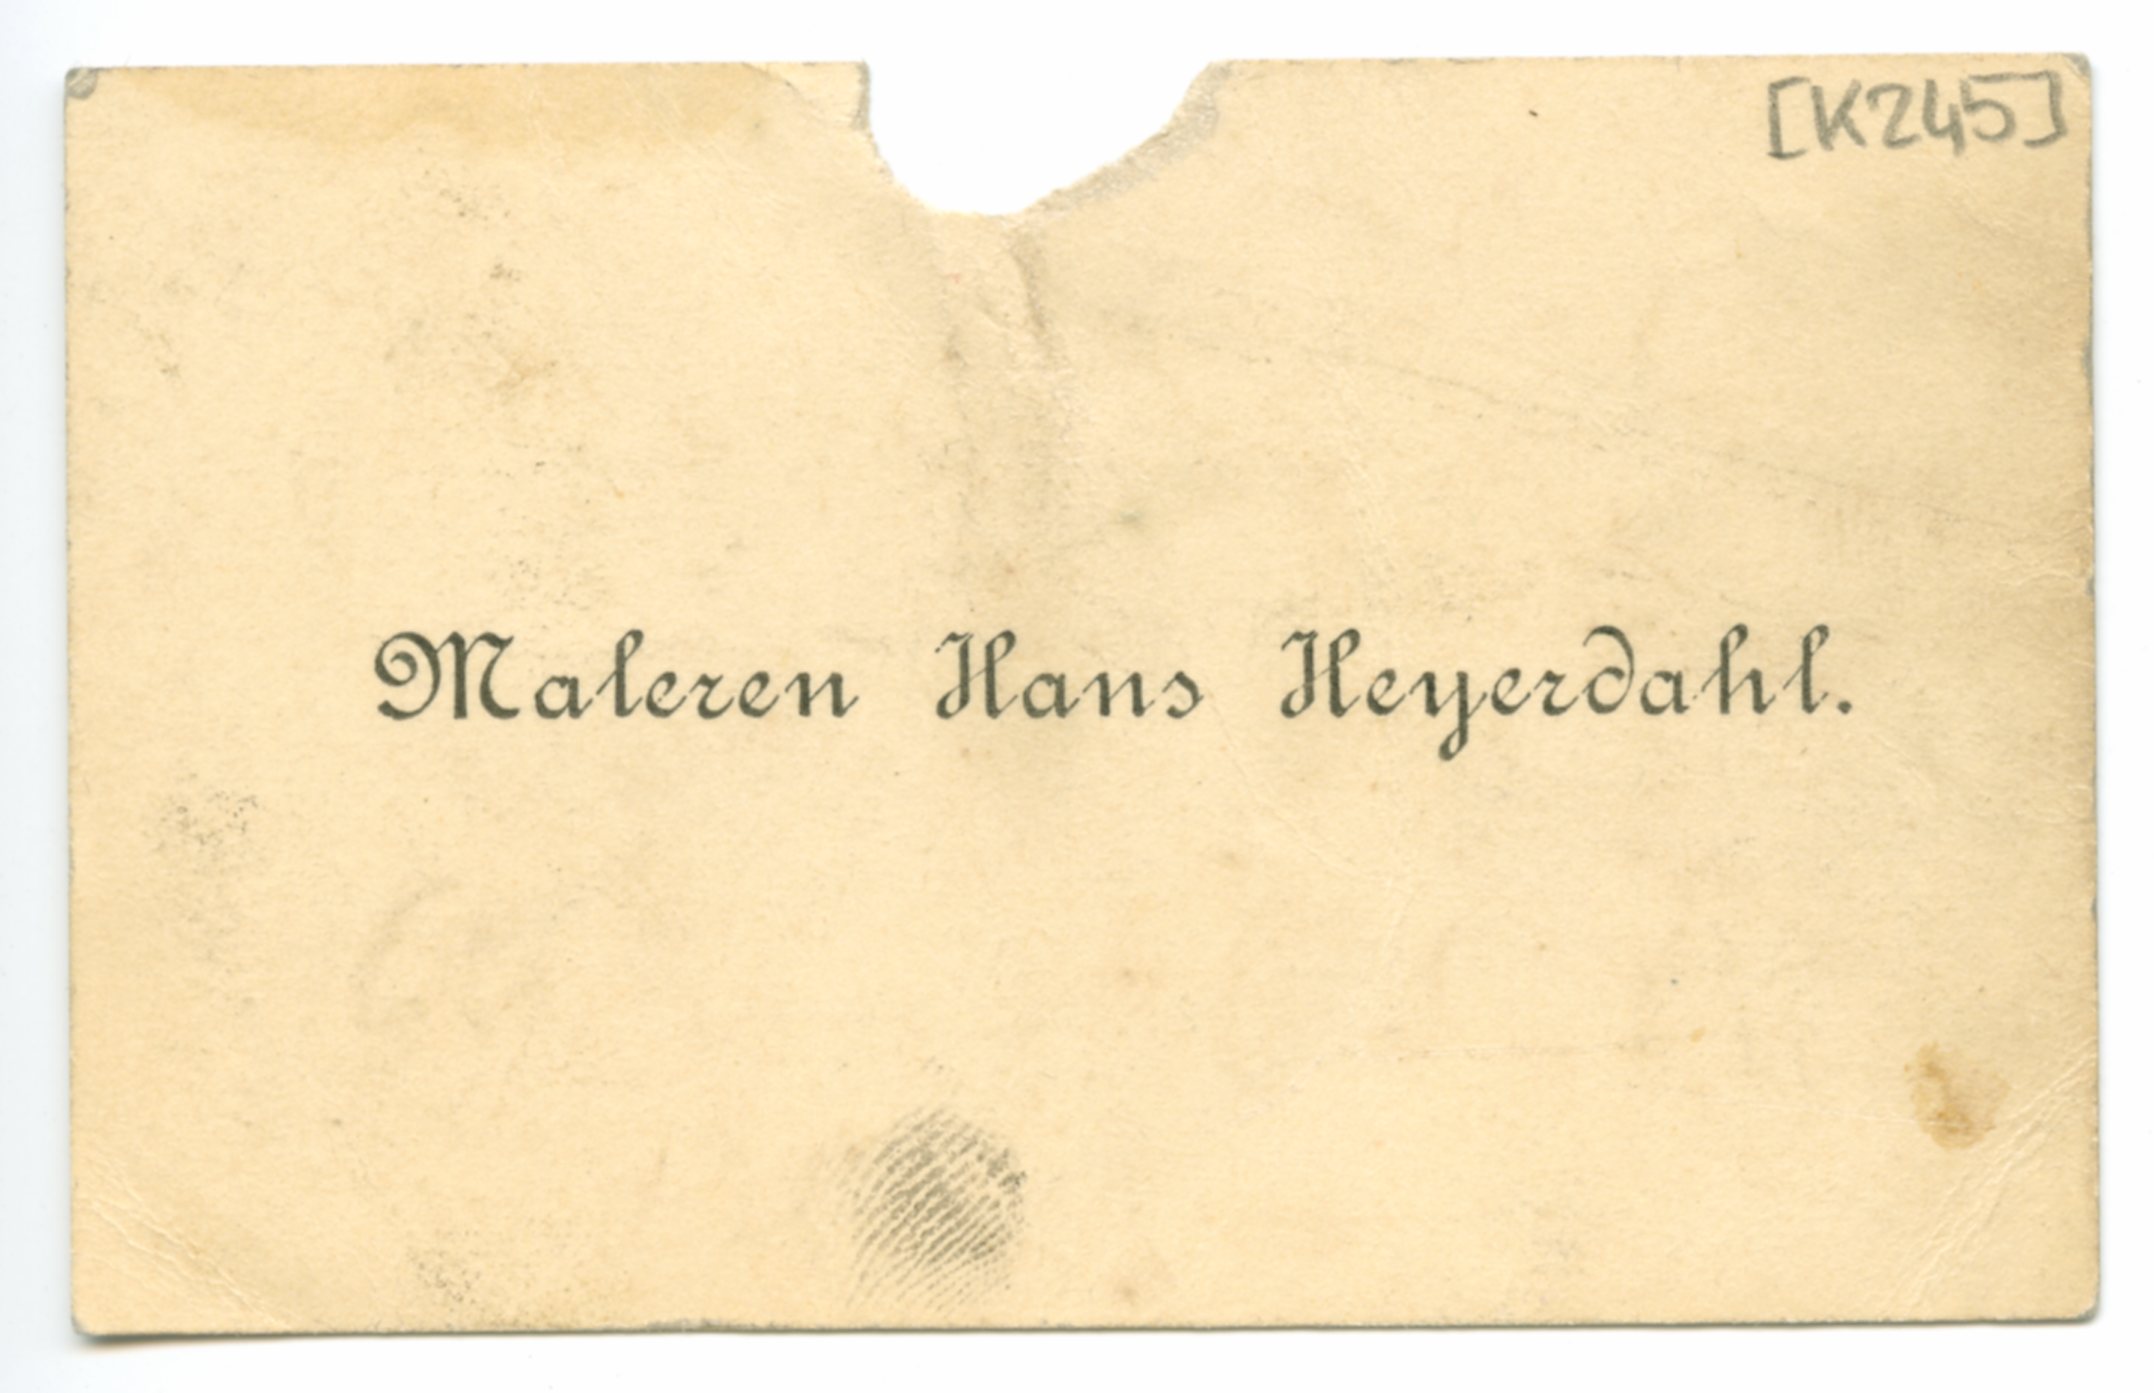 [K245]
Maleren Hans Heyerdahl.